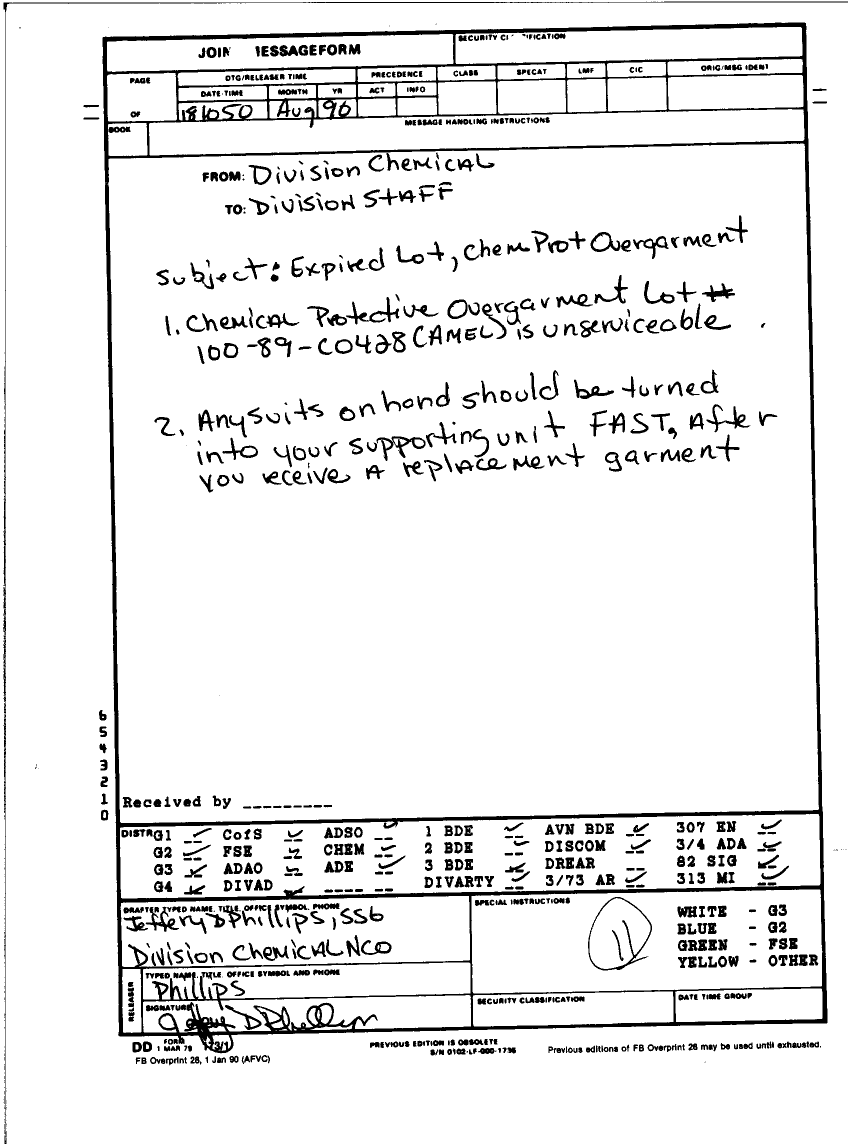 JOIN MESSAGEFORM
SECURITY CLASSIFICATION
PAGE
DTG/RELEASER TIME
PRECEDENCE
CLASS
SPECAT
LMF
CIC
ORIG/MSG IDENT
DATE-TIME
MONTH
YR
ACT
INFO
OF
181050
Aug
90
BOOK
MESSAGE HANDLING INSTRUCTIONS
FROM: Division Chemical
TO: Division Staff
Subject: Expired Lot, Chem Prot Overgarment
1. Chemical Protective Overgarment Lot #
100-89-C0428 (AMEL) is unserviceable.
2. Any suits on hand should be turned
into your supporting unit FAST, After
you receive A replacement garment
6
5
4
3
2
1
0
Received by _________
DISTR G1 CofS ADSO __ 1 BDE AVN BDE 307 EN
G2 FSE CHEM 2 BDE DISCOM 3/4 ADA
G3 ADAO ADE 3 BDE DREAR __ 82 SIG
G4 DIVAD ____ __ DIVARTY 3/73 AR 313 MI
DRAFTER TYPED NAME, TITLE, OFFICE SYMBOL, PHONE
Jeffery D Phillips, SSG
Division Chemical NCO
SPECIAL INSTRUCTIONS
11
WHITE - G3
BLUE - G2
GREEN - FSE
YELLOW - OTHER
RELEASER
TYPED NAME, TITLE, OFFICE SYMBOL AND PHONE
Phillips
SIGNATURE
Jeffery D Phillips
SECURITY CLASSIFICATION
DATE TIME GROUP
DD FORM 1 MAR 79 173/1
PREVIOUS EDITION IS OBSOLETE
S/N 0102-LF-000-1736
Previous editions of FB Overprint 28 may be used until exhausted.
FB Overprint 28, 1 Jan 90 (AFVC)